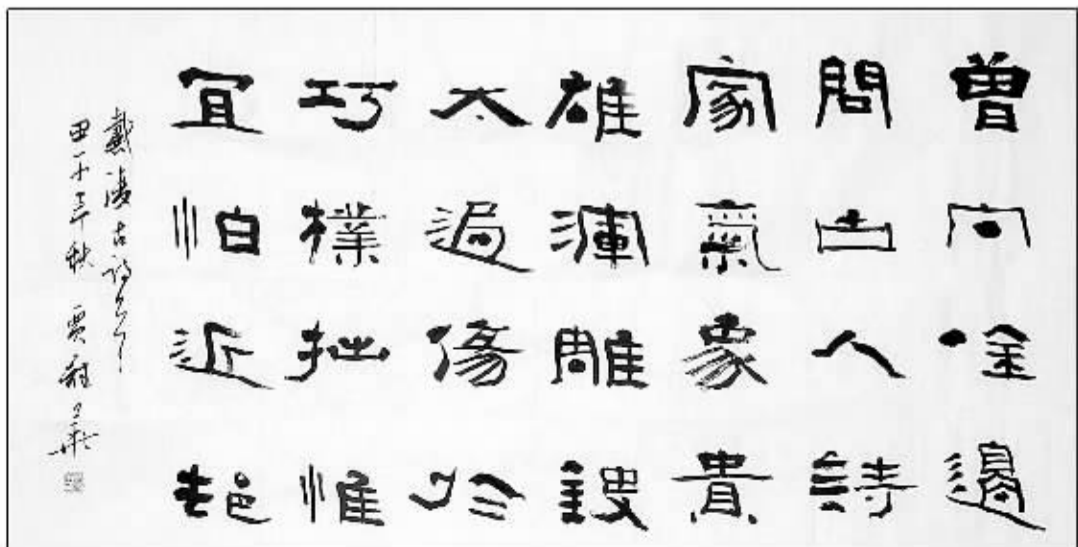 曾向吟邊
問古人詩
家氣象貴
雄渾雕鎪
太過傷於
巧樸拙惟
宜怕近邨
戴復古詩
甲午年秋